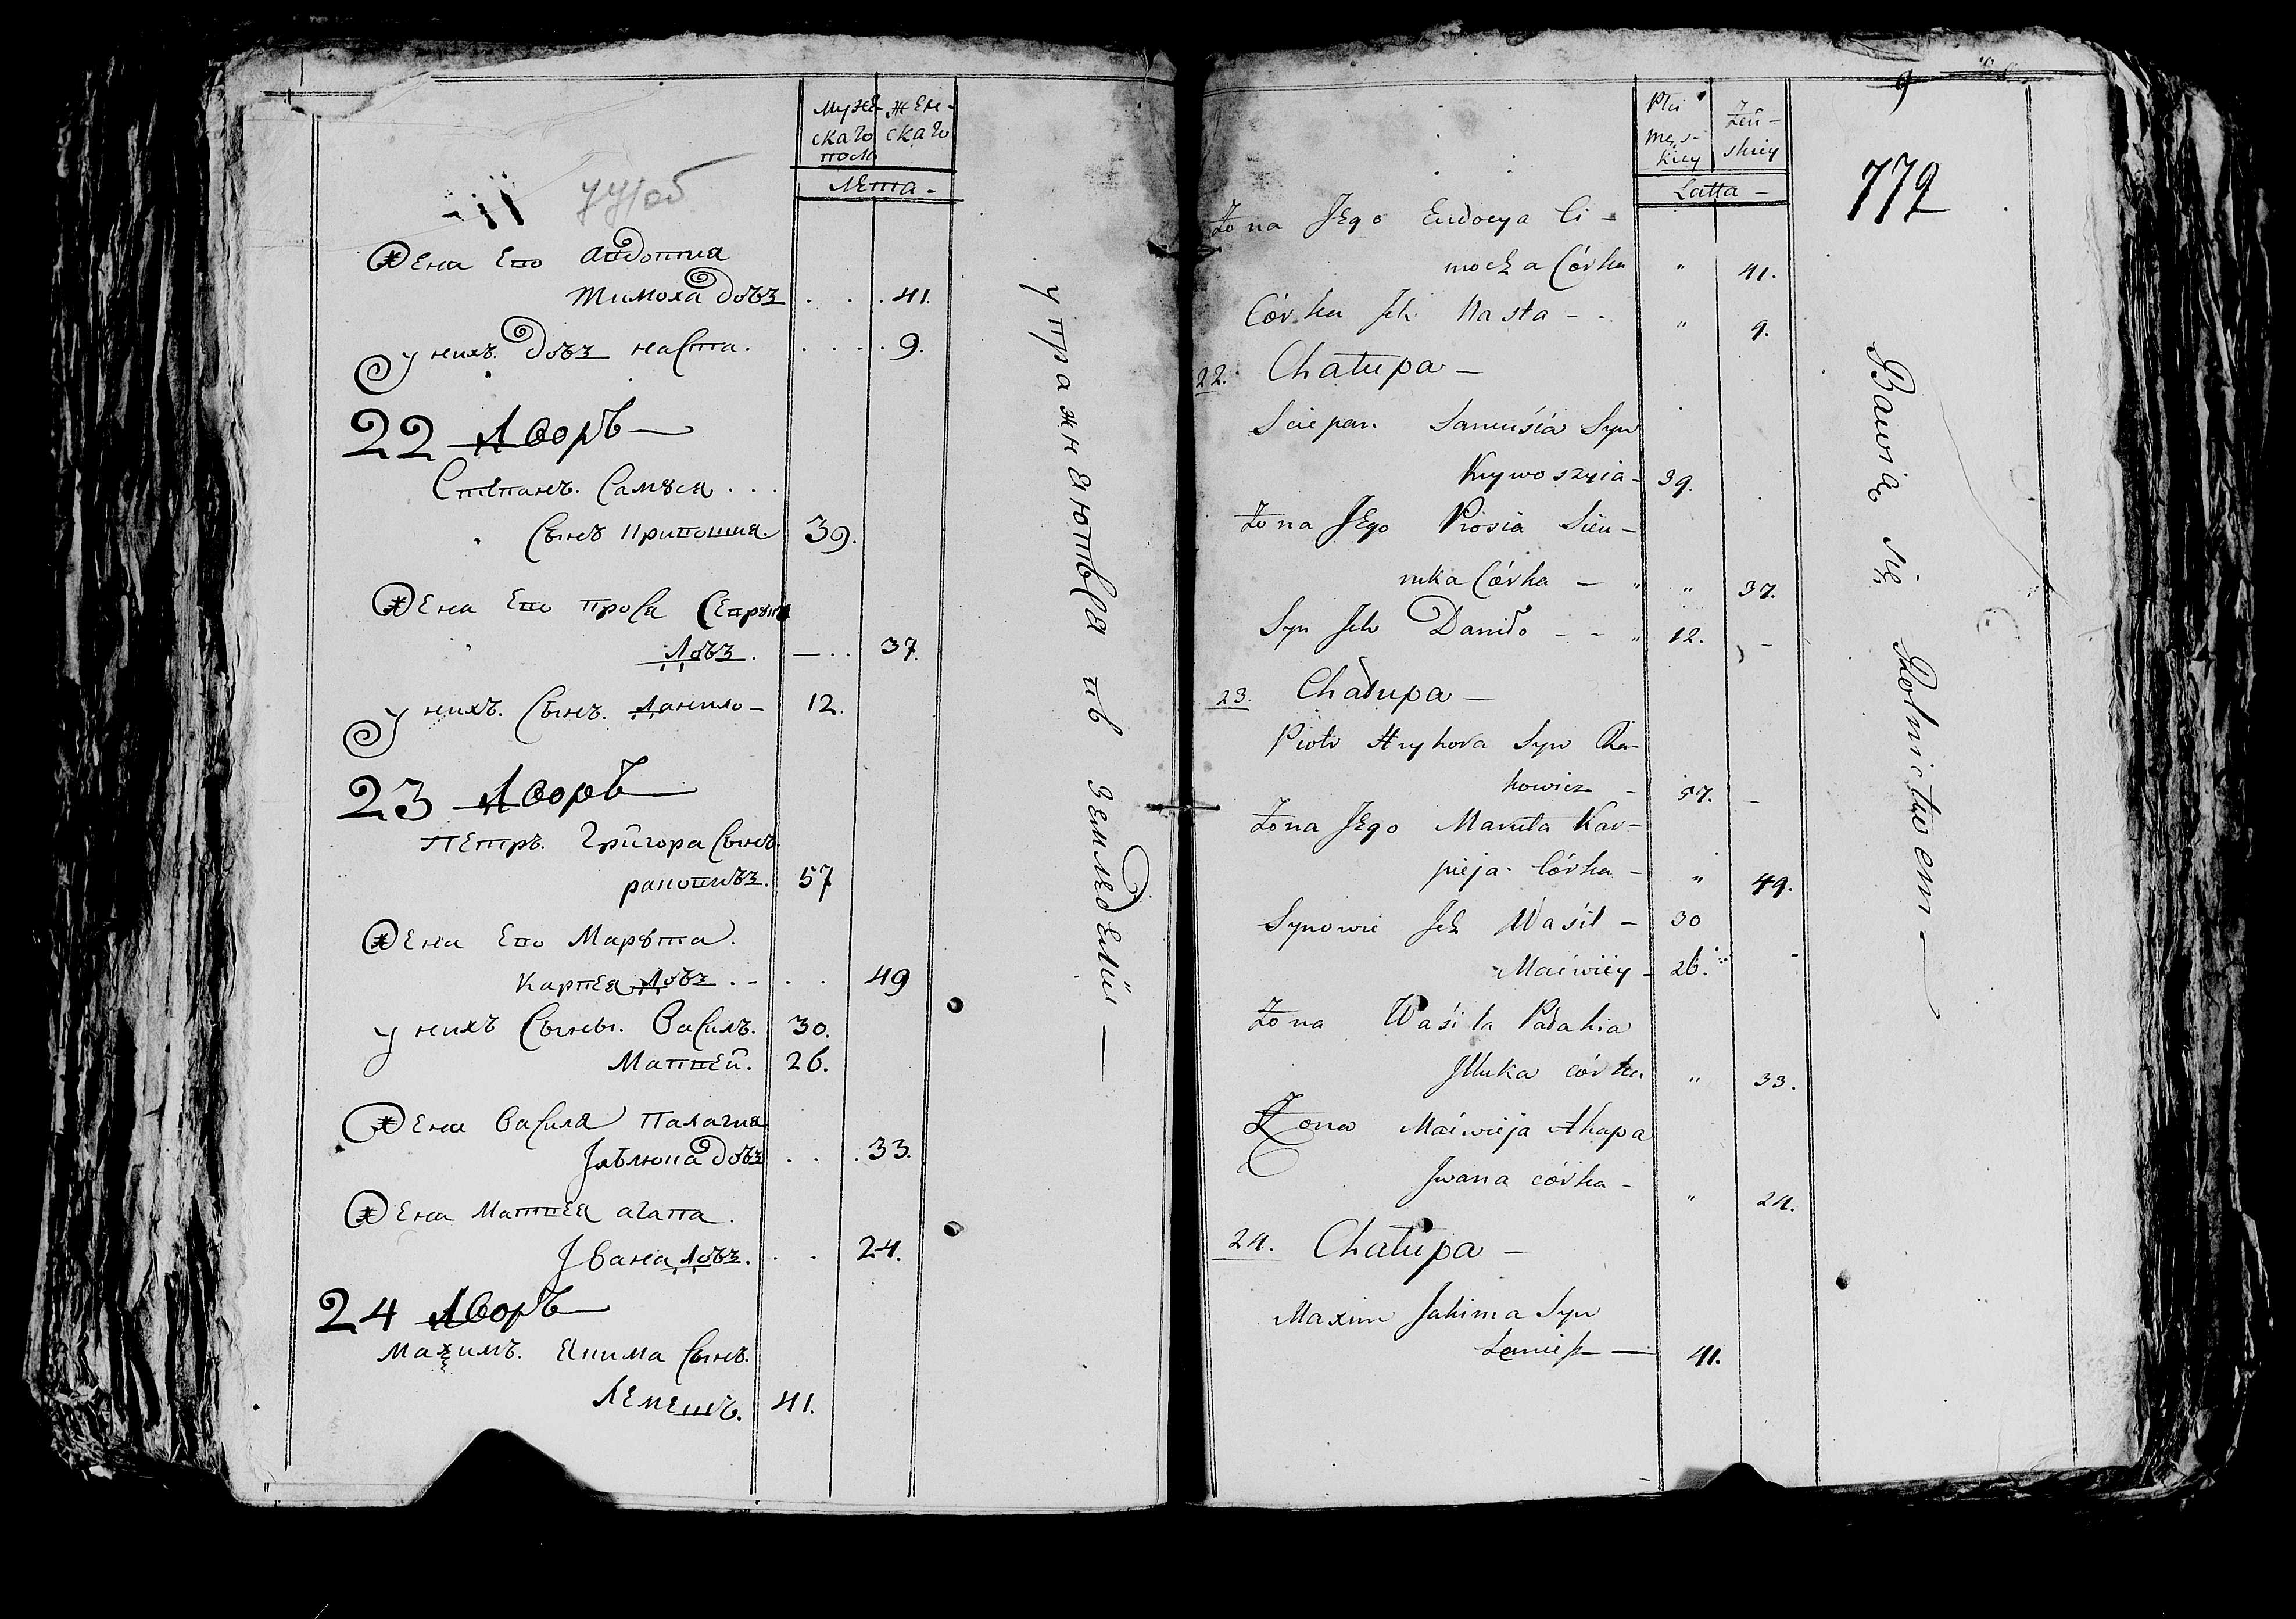 Муже-
скаго
пола
жен-
скаго
Лета -
Жена Его авдотия
тимоха доч
41.
У нихъ доч наста.
9.
22 Дворъ
Степанъ Самуся
Сынъ Кривошия. 39.
Жена Его прося Севрука
доч. 37.
У нихъ Сынъ данило - 12.
23 Дворъ
Петръ Григора Сынъ
раковичъ. 57
Жена Его Марута.
Карпея доч 49
У нихъ Сыны. Василъ. 30.
Матвей. 26.
Жена Василя Палагия
33.
Жена Матвея агапа.
Jвана доч. 24.
24 Дворъ
Маѯимъ. Якима Сынъ.
Лемешъ. 41.
упражняютъся въ земледелии —
Płci
męs-
kiey
żeń-
skiey
Latta -
9
772
Żona Jego Eudocya Ci-
mocha Córka " 41.
Córka Ich Nasta - - " 9.
22. Chałupa -
Sciepan Samusia Syn
Krywoszyia - 39.
Żona Jego Prosia Siew-
ruka Córka - " " 37.
Syn Ich Daniło - - " 12. -
23. Chałupa -
Piotr Hryhora Syn Ra-
kowicz - 57. -
Żona Jego Maruta Kar-
pieja Córka - " 49.
Synowie Ich Wasil - 30
Maćwiey - 26.
Żona Wasila Pałahia
córka " 33.
Żona Maćwieja Ahapa
Jwana córka - " 24.
24. Chałupa -
Maxim Jakima Syn
Lemiesz — 41.
Bawią się Rolnictwem —